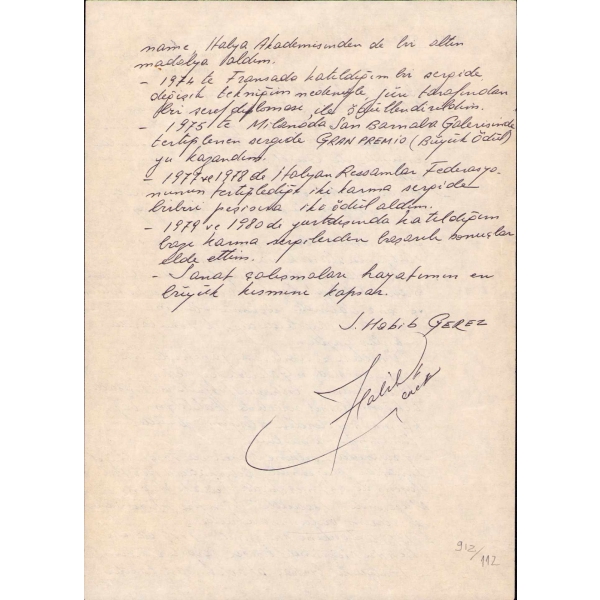 name, İtalya Akademisinden de bir altın
madalya aldım.
- 1974 te Fransada katıldığım bir sergide
değişik tekniğim nedeniyle, jüri tarafından
bir şeref diploması ile ödüllendirildim.
- 1975 te Milano'da San Barnaba Galerisinde
tertiplenen sergide GRAN PREMIO (Büyük Ödül)
yü kazandım.
- 1977 ve 1978 de İtalyan Ressamlar Federasyo-
nunun tertiplediği iki karma sergide
birbiri peşisıra iki ödül aldım.
- 1979 ve 1980 de yurtdışında katıldığım
bazı karma sergilerden başarılı sonuçlar
elde ettim.
- Sanat çalışmaları hayatımın en
büyük kısmını kapsar.
J. Habib GEREZ
Habib
Gerez
912/112